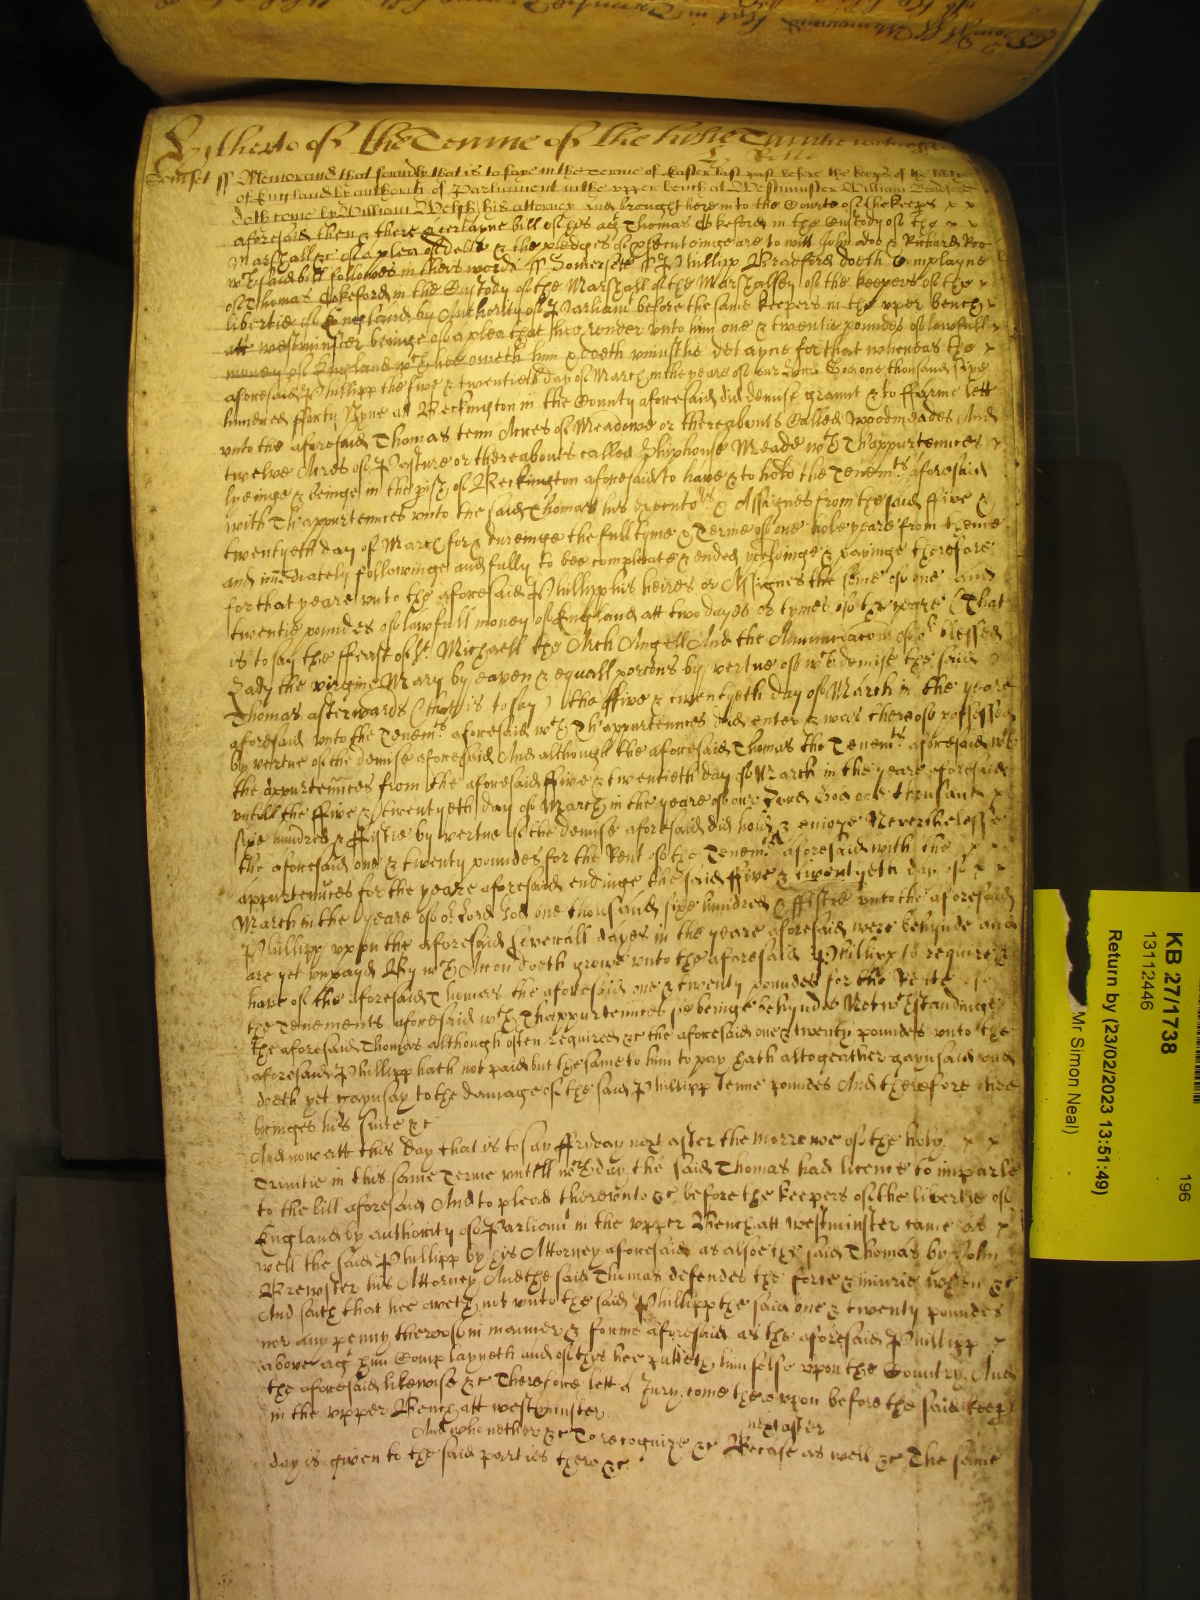 As yet of the Terme of the holie Trinitie
Somerset ss Memorand that formerly that is to saye in the terme of Easter last past before the keeps of the libertie
of England by authoritie of Parliament in the upper bench at Westminster
doth come by William Welsh his attorney and brought here into the Courte of the keeps x x
aforesaid then & there a certayne bill of his agt Thomas Cokeford in the Custody of the x x
Marshall &c of a plea of debt & the pledges of prsecuteinge are to witt John Doo & Richard Roo
wch said bill followes in theis words ss Somersett ss Phillipp Bradford doeth Complayne
of Thomas Cokeford in the Custody of the Marshall of the Marshalsey of the keepers of the x
libertie of England by Authority of Parliamt before the same keepers in the vpper bench x
att westminster beinge of a plea that hee render vnto him one & twentie poundes of lawfull x
money of England wch hee oweth him & doeth vniustlie detayne for that whereas the x
aforesaid Phillipp the five & twentieth day of March in the yeare of our Lord God one thousand sixe
hundred fforty Nyne att Beckington in the County aforesaid did demise graunt & to ffarme lett
vnto the aforesaid Thomas tenn Acres of Meadowe or thereabouts Called woodmeades And
twelve Acres of Pasture or thereabouts called Shiphouse Meade wth Thappurtennces x
lyeinge & beinge in the pish of Beckington aforesaid to have & to hold the Tenemts aforesaid
with Thappurtennces vnto the said Thomas his Executors & Assignes from the said ffive &
twentyeth day of March for & dureinge the full tyme & Terme of one hole yeare from thence
and immediately followinge and fully to bee compleate & ended yeeldinge & payinge therefore
for that yeare vnto the aforesaid Phillipp his heires or Assignes the some of one and
twentie poundes of lawfull money of England att two dayes or tymes of the yeare (That
is to say the ffeast of St Michaell the Arch Angell And the Annunciacon of or blessed
Lady the virgine Mary by eaven & equall porcons by vertue of wch demise the said
Thomas afterwards (that is to say) the ffive & twentyeth day of March in the yeare
aforesaid vnto the Tenemts aforesaid wth Thappurtennces did enter & was thereof possessed
by vertue of the demise aforesaid And although the aforesaid Thomas the Tenemts aforesaid wth
the appurtennces from the aforesaid ffive & twentieth day of March in the yeare aforesaid
vntill the ffive & twentyeth day of March in the yeare of our Lord God one thousand x
sixe hundred & ffiftie by vertue of the demise aforesaid did hold & enioye Neverthelesse
the aforesaid one & twenty poundes for the Rent of the Tenemts aforesaid with the x x
appurtennces for the yeare aforesaid endinge the said ffive & twentyeth day of x x
March in the yeare of or Lord God one thousand sixe hundred & ffiftie vnto the aforesaid
Phillipp vppon the aforesaid severall dayes in the yeare aforesaid were behynde and
are yet vnpayd By wch Accon doeth growe vnto the aforesaid Phillipp to require &
have of the aforesaid Thomas the aforesaid one & twenty poundes for the Rente of
the Tenements aforesaid wth Thappurtennces soe beinge behynde Notwthstandinge
the aforesaid Thomas although often required &c the aforesaid one & twenty poundes vnto the
aforesaid Phillipp hath not paid but the same to him to pay hath altogeather gaynsaid and
doeth yet gaynsay to the damage of the said Phillipp Tenne poundes And therefore hee
bringes his suite &c
And now att this day that is to say ffriday next after the morrowe of the holy x x
Trinitie in this same Terme vntill wch day the said Thomas had licence to imparle
to the bill aforesaid And to plead therevnto &c before the keepers of the libertie of
England by authority of Parliamt in the vpper Bench att westminster came as x
well the said Phillipp by his Attorney aforesaid as alsoe the said Thomas by John
Brewster his Attorney And the said Thomas defendes the force & iniurie when &c
And saith that hee oweth not vnto the said Phillipp the said one & twenty poundes
nor any penny thereof in manner & forme aforesaid as the aforesaid Phillipp x
above agt him Complayneth and of this hee putteth himselfe vpon the Country And
the aforesaid likewise &c Therefore lett a Jury come therevpon before the said keeps
in the vpper Bench att westminster next after
And who nether &c To recognize &c Because as well &c The same
day is given to the said parties there &c
KB 27/1738
13112446
Return by (23/02/2023 13:51:49)
Mr Simon Neal)
196